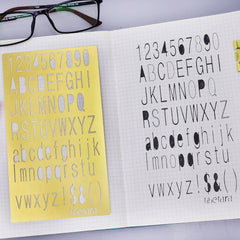 1234567890
ABCDEFGHI
JKLMNOPQ
RSTUVWXYZ
abcdefghijk
lmnopqrstu
vwxyz!$&()
1234567890
ABCDEFGHI
JKLMNOPQ
RSTUVWXYZ
abcdefghijk
lmnopqrstu
vwxyz!$&()